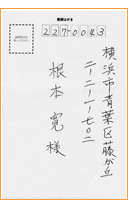 郵便はがき
227-0043
横浜市青葉区藤が丘
二-二-一-七〇二
根本寛様